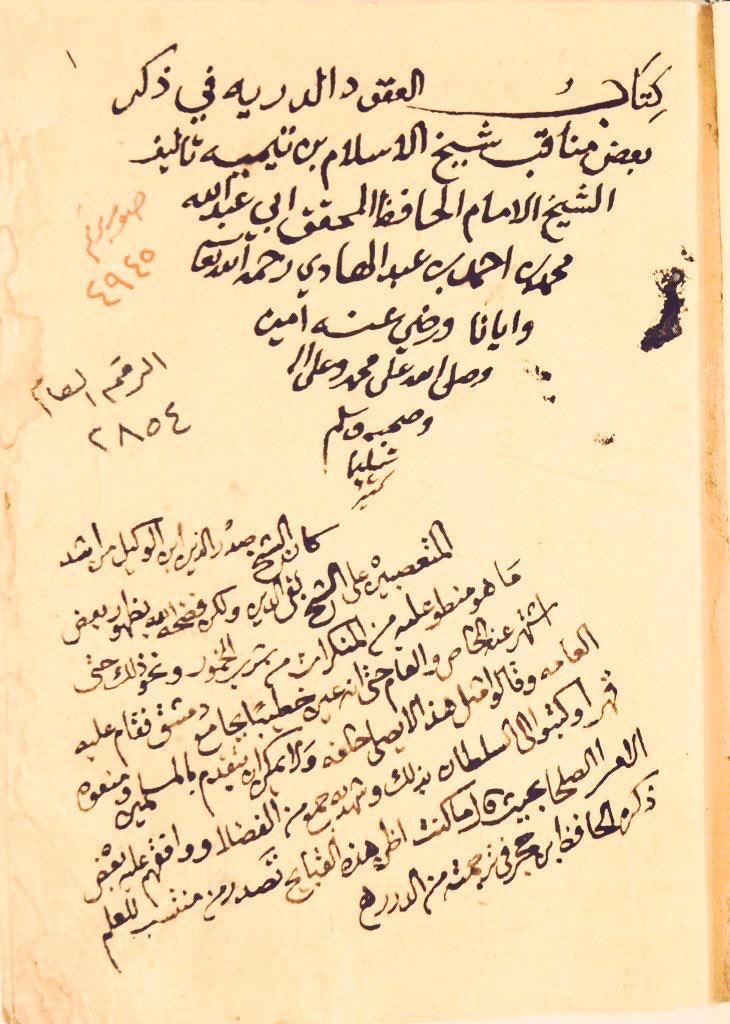 ١
كتاب العقود الدريه في ذكر
بعض مناقب شيخ الاسلام بن تيميه تاليف
الشيخ الامام الحافظ المحقق ابي عبد الله
محمد بن احمد بن عبد الهادي رحمه الله تعا
وايانا ورضي عنه آمين
وصلى الله على محمد وعلى ال
وصحبه وسلم
كثير
٤٩٤٥
الرقم العام
٢٨٥٤
كان الشيخ صدر الدين ابن الوكيل من اشد
المتعصبين على الشيخ تقي الدين ولكن فضحه الله بظهور بعض
ما هو منطو عليه من المنكرات من شرب الخمور ونحو ذلك حتى
اشتهر عند الخاص والعام حتى انه عين خطيبا بجامع دمشق فقام عليه
العامه وقالوا مثل هذا لا يصلى خلفه ولا يمكن ان يتقدم بالمسلمين ومنعوه
قهرا وكتبوا الى السلطان بذلك وشهد به جمع من الفضلا ووافقهم عليه بعض
الامرا الصلحا بحيث قال ما كنت اظن هذه القبايح تصدر من منتسب للعلم
ذكره الحافظ ابن حجر في ترجمته من الدرر